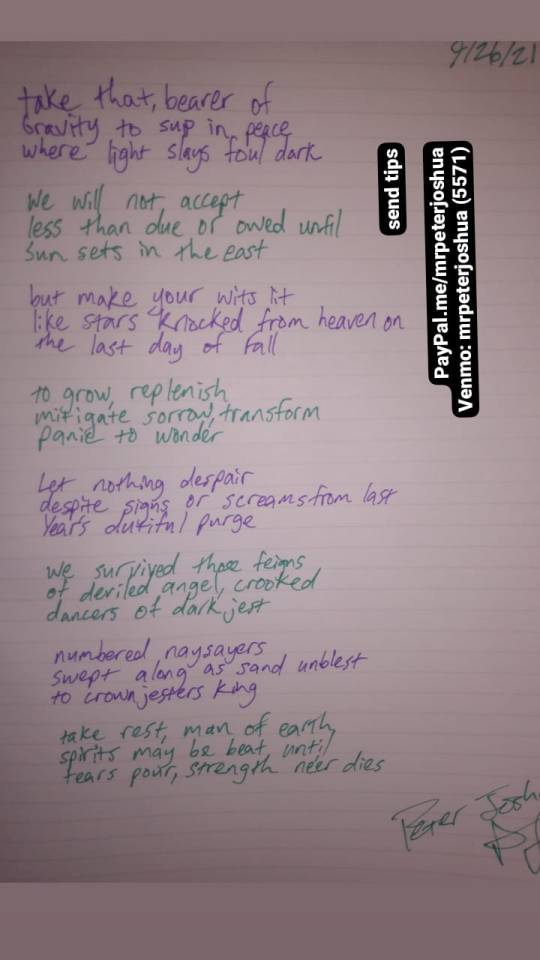 9/26/21
take that, bearer of
Gravity to sup in peace
where light slays foul dark
We will not accept
less than due or owed until
Sun sets in the east
but make your wits lit
like stars knocked from heaven on
the last day of fall
to grow, replenish
mitigate sorrow, transform
panic to wonder
Let nothing despair
despite signs or screams from last
Year's dutiful purge
We survived those feigns
of deviled angel, crooked
dancers of dark jest
numbered naysayers
swept along as sand unblest
to crown jesters king
take rest, man of earth,
spirits may be beat, until
tears pour, strength neer dies
Peter Josh
PJ
send tips
PayPal.me/mrpeterjoshua
Venmo: mrpeterjoshua (5571)